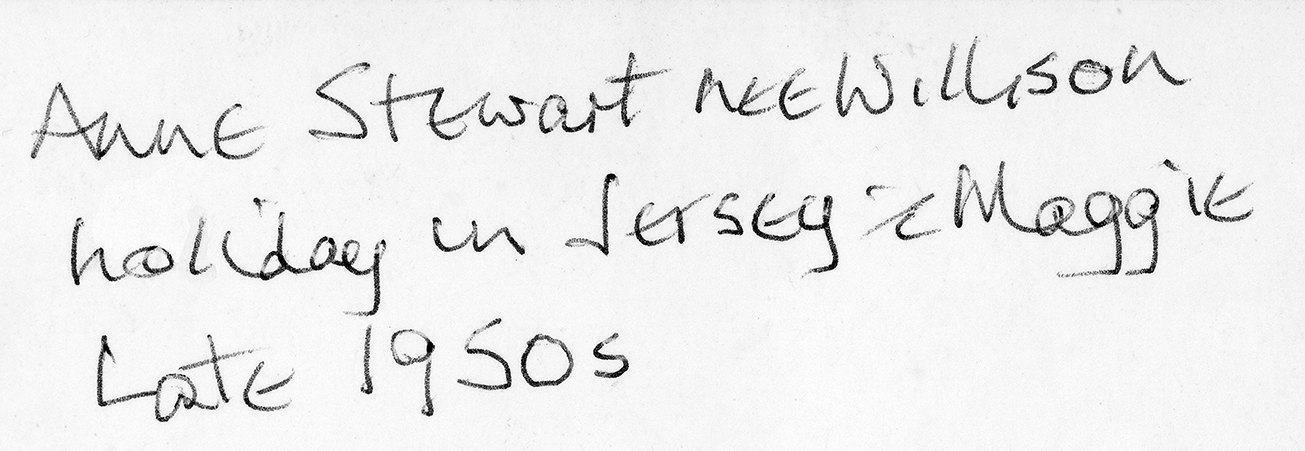 Anne Stewart nee Willison
holiday in Jersey c̄ Maggie
Late 1950s